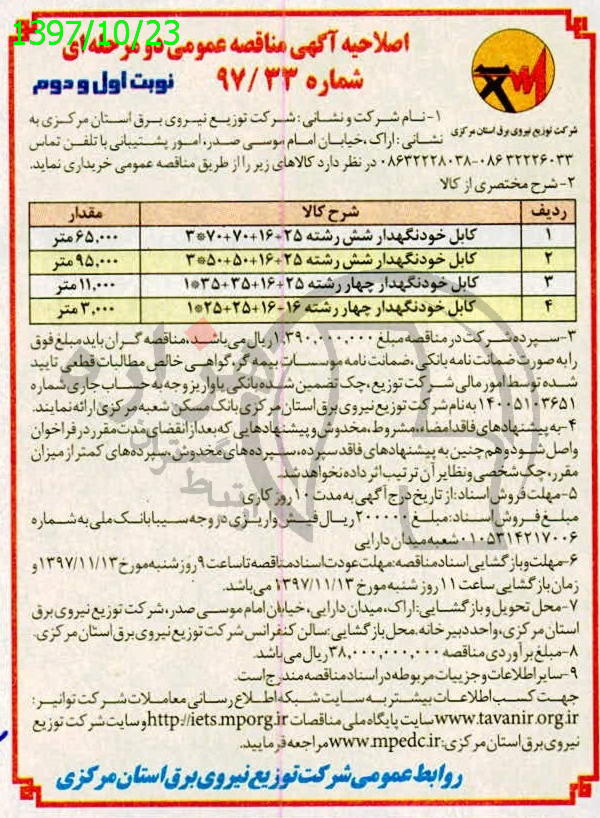 1397/10/23
اصلاحیه آگهی مناقصه عمومی دو مرحله ای
شماره ۹۷/۳۳ نوبت اول و دوم
شرکت توزیع نیروی برق استان مرکزی
۱- نام شرکت و نشانی: شرکت توزیع نیروی برق استان مرکزی به
نشانی: اراک، خیابان امام موسی صدر، امور پشتیبانی با تلفن تماس
۰۸۶۳۲۲۲۶۰۳۳-۰۸۶۳۲۲۲۸۰۳۸ در نظر دارد کالاهای زیر را از طریق مناقصه عمومی خریداری نماید.
۲- شرح مختصری از کالا
ردیف شرح کالا مقدار
۱ کابل خودنگهدار شش رشته ۲۵+۱۶+۷۰+۷۰*۳ ۶۵,۰۰۰ متر
۲ کابل خودنگهدار شش رشته ۲۵+۱۶+۵۰+۵۰*۳ ۹۵,۰۰۰ متر
۳ کابل خودنگهدار چهار رشته ۲۵+۱۶+۳۵+۳۵*۱ ۱۱,۰۰۰ متر
۴ کابل خودنگهدار چهار رشته ۱۶+۱۶+۲۵+۲۵*۱ ۳,۰۰۰ متر
۳- سپرده شرکت در مناقصه مبلغ ۱,۳۹۰,۰۰۰,۰۰۰ ریال می باشد، مناقصه گران باید مبلغ فوق
را به صورت ضمانت نامه بانکی، ضمانت نامه موسسات بیمه گر، گواهی خالص مطالبات قطعی تایید
شده توسط امور مالی شرکت توزیع، چک تضمین شده بانکی یا واریز وجه به حساب جاری شماره
۱۴۰۰۵۱۰۳۶۵۱ به نام شرکت توزیع نیروی برق استان مرکزی بانک مسکن شعبه مرکزی ارائه نمایند.
۴- به پیشنهادهای فاقد امضاء، مشروط، مخدوش و پیشنهادهایی که بعد از انقضای مدت مقرر در فراخوان
واصل شود و هم چنین به پیشنهادهای فاقد سپرده، سپرده های مخدوش، سپرده های کمتر از میزان
مقرر، چک شخصی و نظایر آن ترتیب اثر داده نخواهد شد.
۵- مهلت فروش اسناد: از تاریخ درج آگهی به مدت ۱۰ روز کاری
مبلغ فروش اسناد: مبلغ ۲۰۰۰۰۰ ریال فیش واریزی در وجه سیبا بانک ملی به شماره
۰۱۰۵۳۱۴۲۱۷۰۰۶ شعبه میدان دارایی
۶- مهلت و بازگشایی اسناد مناقصه: مهلت عودت اسناد مناقصه تا ساعت ۹ روز شنبه مورخ ۱۳۹۷/۱۱/۱۳ و
زمان بازگشایی ساعت ۱۱ روز شنبه مورخ ۱۳۹۷/۱۱/۱۳ می باشد.
۷- محل تحویل و بازگشایی: اراک، میدان دارایی، خیابان امام موسی صدر، شرکت توزیع نیروی برق
استان مرکزی، واحد دبیرخانه. محل بازگشایی: سالن کنفرانس شرکت توزیع نیروی برق استان مرکزی.
۸- مبلغ برآوردی مناقصه ۳۸,۰۰۰,۰۰۰,۰۰۰ ریال می باشد.
۹- سایر اطلاعات و جزییات مربوطه در اسناد مناقصه مندرج است.
جهت کسب اطلاعات بیشتر به سایت شبکه اطلاع رسانی معاملات شرکت توانیر:
www.tavanir.org.ir سایت پایگاه ملی مناقصات http://iets.mporg.ir و سایت شرکت توزیع
نیروی برق استان مرکزی: www.mpedc.ir مراجعه فرمایید.
روابط عمومی شرکت توزیع نیروی برق استان مرکزی